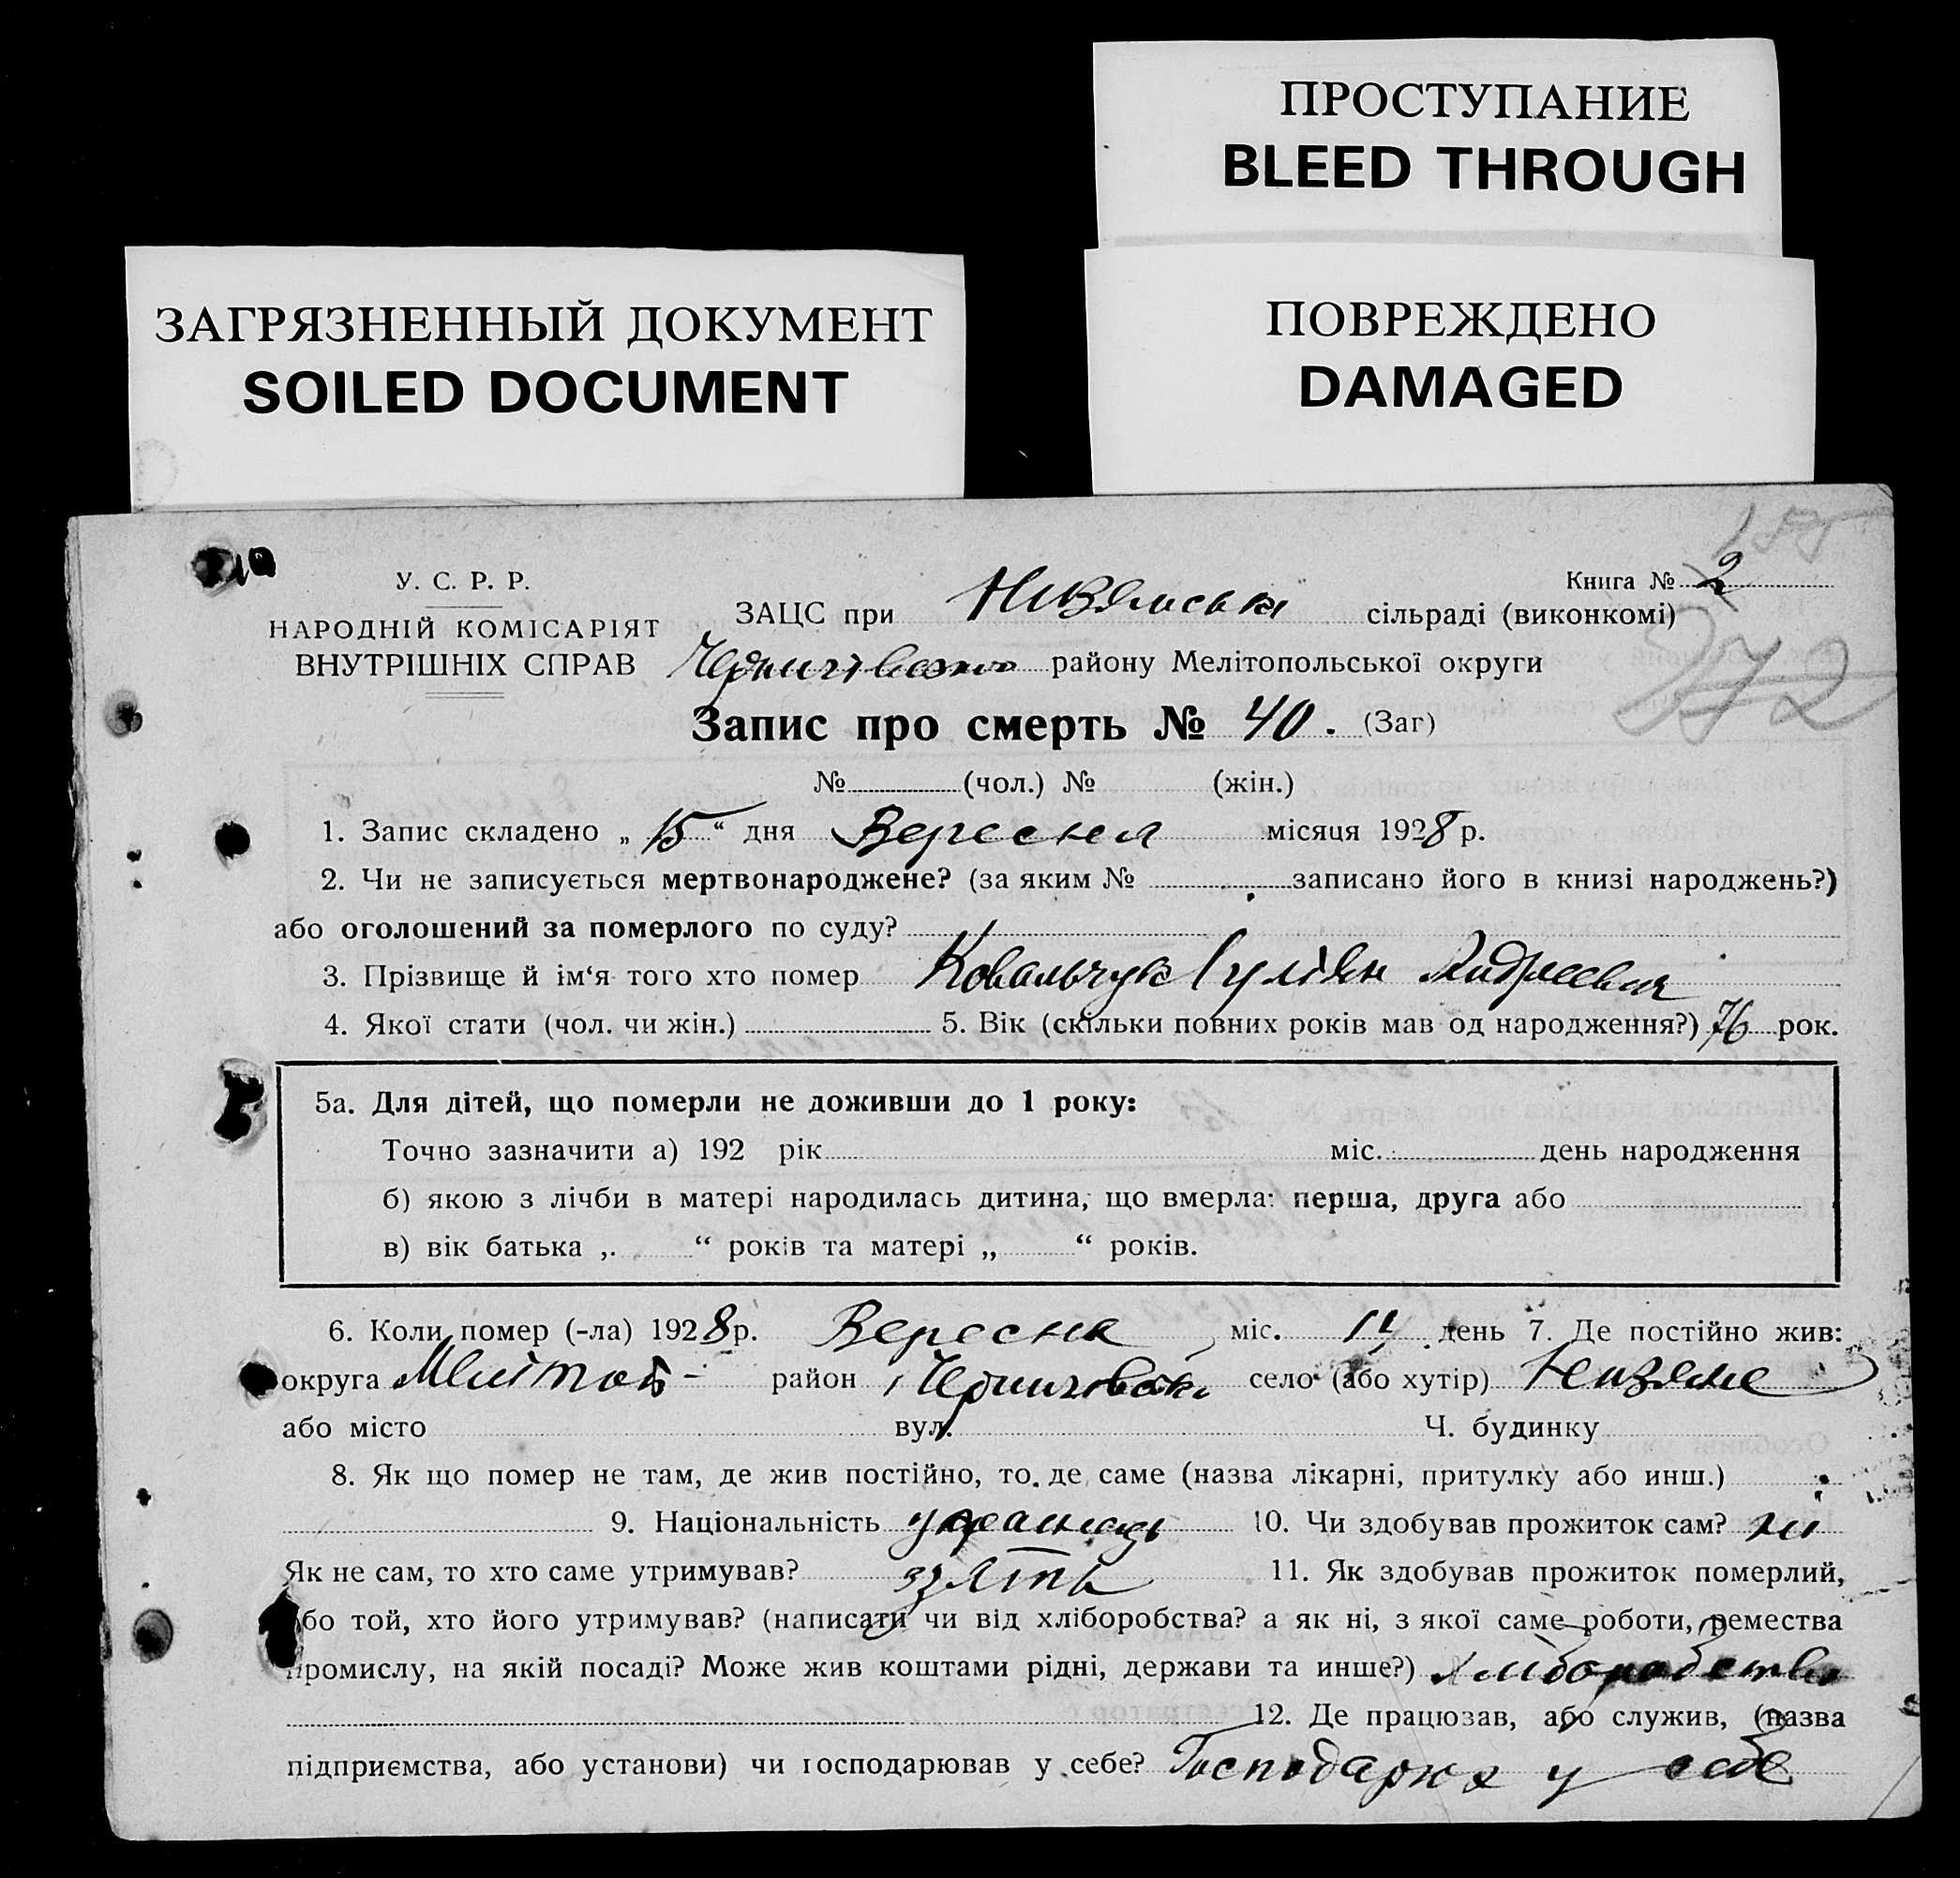 ПРОСТУПАНИЕ
BLEED THROUGH
ЗАГРЯЗНЕННЫЙ ДОКУМЕНТ
SOILED DOCUMENT
ПОВРЕЖДЕНО
DAMAGED
У. С. Р. Р.
НАРОДНІЙ КОМІСАРІЯТ
ВНУТРІШНІХ СПРАВ
Книга № 2
272
ЗАЦС при сільраді (виконкомі)
району Мелітопольської округи
Запис про смерть № 40. (Заг)
№ (чол.) № (жін.)
1. Запис складено „ 15 “ дня Вересня місяця 1928 р.
2. Чи не записується мертвонароджене? (за яким № записано його в книзі народжень?)
або оголошений за померлого по суду?
3. Прізвище й ім‘я того хто помер Ковальчук
4. Якої стати (чол. чи жін.) 5. Вік (скільки повних років мав од народження?) 76 рок.
5а. Для дітей, що померли не доживши до 1 року:
Точно зазначити а) 192 рік міс. день народження
б) якою з лічби в матері народилась дитина, що вмерла: перша, друга або
в) вік батька „ “ років та матері „ “ років.
6. Коли помер (-ла) 1928 р. Вересня міс. 14 день 7. Де постійно жив:
округа район село (або хутір) Низяне
або місто вул. Ч. будинку
8. Як що помер не там, де жив постійно, то де саме (назва лікарні, притулку або инш.)
9. Національність українець 10. Чи здобував прожиток сам? ні
Як не сам, то хто саме утримував? зять 11. Як здобував прожиток померлий,
або той, хто його утримував? (написати чи від хліборобства? а як ні, з якої саме роботи, ремества
промислу, на якій посаді? Може жив коштами рідні, держави та инше?) хліборобство
12. Де працював, або служив, (назва
підприємства, або установи) чи господарював у себе? Господарює у себе